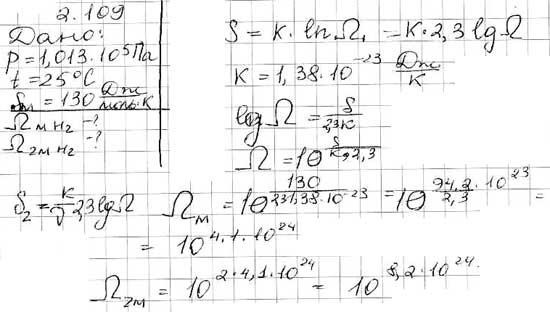 2.109
Дано:
P=1,013·10⁵Па
t=25°C
Sм=130 Дж/моль·К
Ωм н₂ -?
Ω₂м н₂ -?
S = K·lnΩ, =K·2,3 lgΩ
K = 1,38·10⁻²³ Дж/К
lgΩ = S/2,3K
Ω = 10^(S/K·2,3)
S₂ = K/V 2,3lgΩ Ωм = 10^(130/2,3·1,38·10⁻²³) = 10^(94,2·10²³/2,3) =
= 10^(4,1·10²⁴)
Ω₂м = 10^(2·4,1·10²⁴) = 10^(8,2·10²⁴).